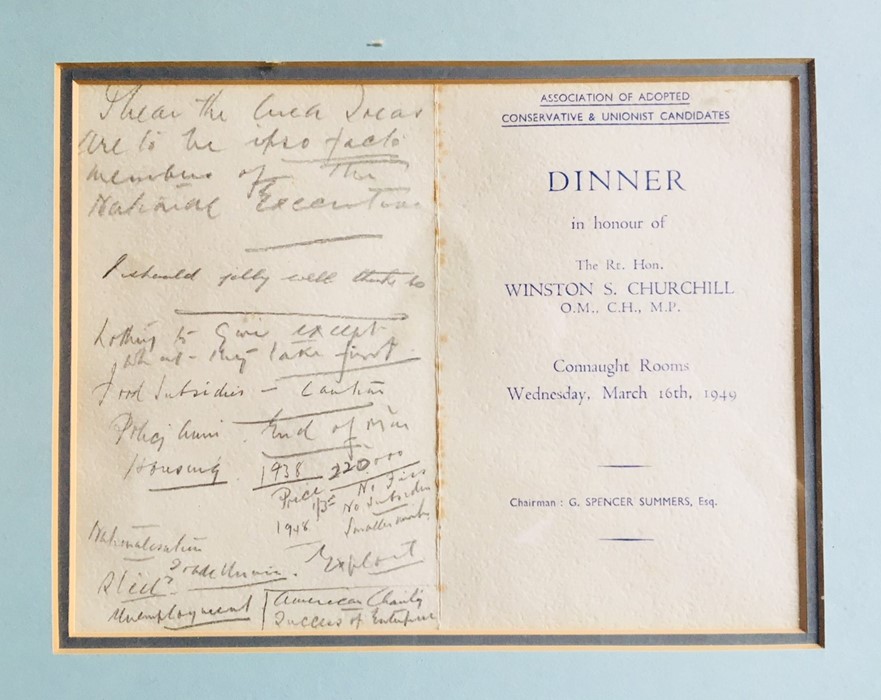 I hear the Area
are to be ipso facto
members of the
National Executive
I should jolly well think so
Nothing to Give except
what they take first
Food Subsidies - Caution
Policy End of
Housing 1938 220.000
Price
No
No Subsidies
1948
Smaller
Nationalisation
Steel Trade Unions. Exploit
Unemployment American Charity
Success of Enterprise
ASSOCIATION OF ADOPTED
CONSERVATIVE & UNIONIST CANDIDATES
DINNER
in honour of
The Rt. Hon.
WINSTON S. CHURCHILL
O.M., C.H., M.P.
Connaught Rooms
Wednesday, March 16th, 1949
Chairman : G. SPENCER SUMMERS, Esq.